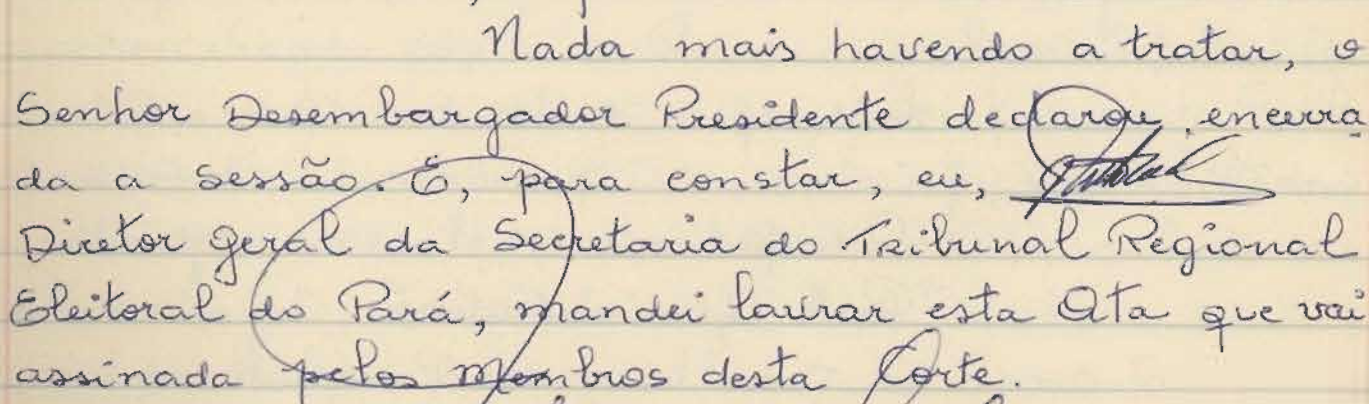 Nada mais havendo a tratar, o
Senhor Desembargador Presidente declarou encerra
da a sessão. E, para constar, eu,
Diretor Geral da Secretaria do Tribunal Regional
Eleitoral do Pará, mandei lavrar esta Ata que vai
assinada pelos Membros desta Corte.